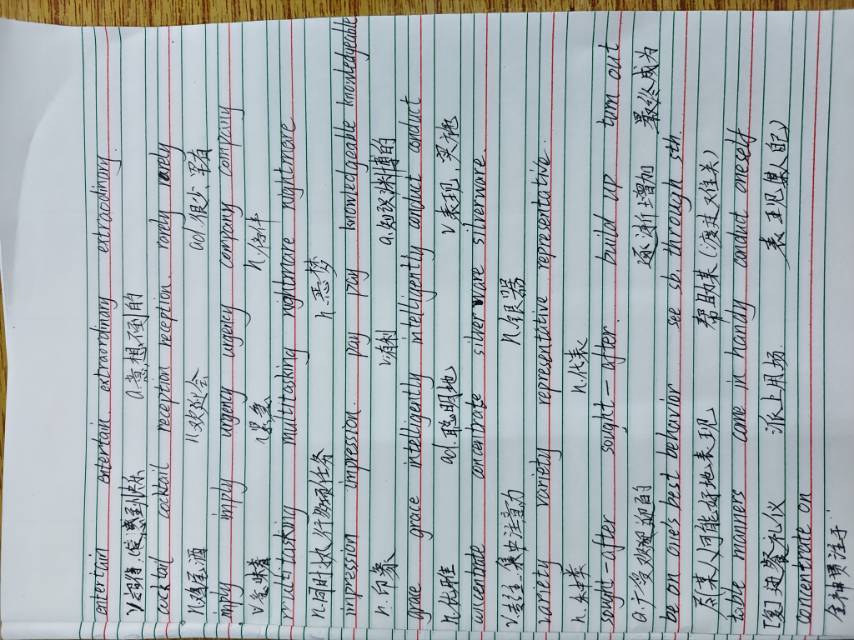 entertain entertain extraordinary extraordinary
v.招待,使感到快乐 a.意想不到的
cocktail cocktail reception reception rarely rarely
n.鸡尾酒 n.欢迎会 ad.很少,罕有
imply imply urgency urgency company company
v.意味着 紧急 n.伙伴
multitasking multitasking nightmare nightmare
n.同时执行多项任务 n.恶梦
impression impression pay pay knowledgeable knowledgeable
n.印象 v.有利 a.知识渊博的
grace grace intelligently intelligently conduct conduct
n.优雅 ad.聪明地 v.表现,实施
concentrate concentrate silverware silverware
v.专注,集中注意力 n.银器
variety variety representative representative
n.种类 n.代表
sought-after sought-after build up turn out
a.广受欢迎的 逐渐增加 最终成为
be on one's best behavior see sb. through sth.
尽可能好地表现 帮助某人(渡过难关)
table manners come in handy conduct oneself
进餐礼仪 派上用场 表现某人(自己)
concentrate on
全神贯注于